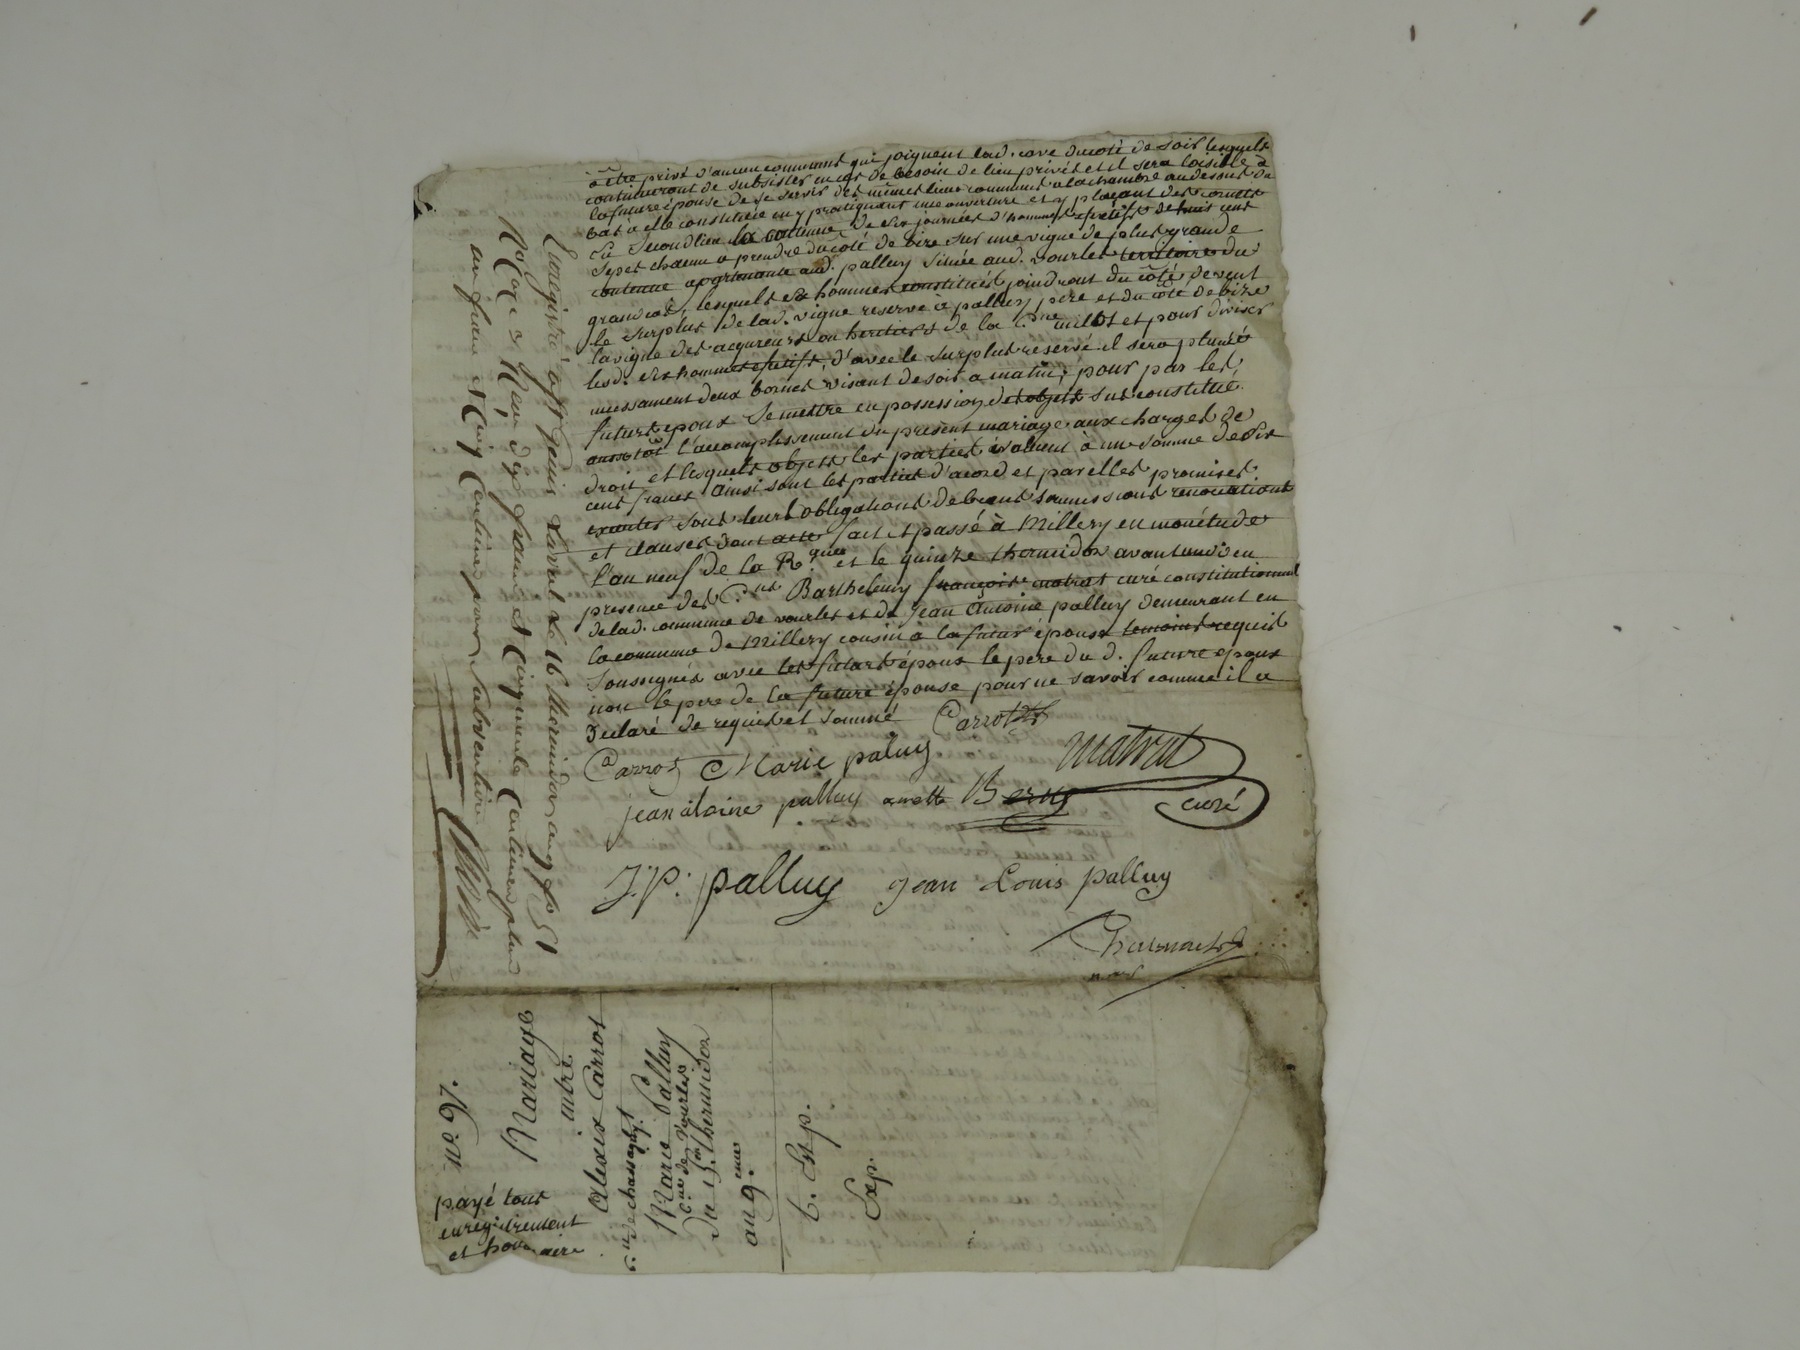 être privé d'aucun communs qui joignent lad. cave du coté de soir lesquels
continueront de subsister en cas de besoin de lieu privés et il sera loisible à
la future épouse de se servir des mêmes lieux communs a la chambre au dessus du
bas à elle constituée en y pratiquant une ouverture et y plaçant des cornets
en second lieu la contenue de dix journées d'hommes effectifs de huit cent
seps chacun a prendre du coté de bize sur une vigne de plus grande
contenue apartenante aud. palluy située aud. vourles territoire du
lesquels dix hommes constitués joindront du côté de vent
le surplus de lad. vigne reservé à palluy pere et du côté de bize
la vigne des acquereurs ou heritiers de la C.ne millot et pour diviser
lesd. dix hommes effectifs, d'avec le surplus reservé il sera planté
incessament deux bornes visant de soir a matin, pour par les
futurs epoux se mettre en possession des objets sus constitué
aussitôt l'accomplissement du present mariage aux charges de
droit et lesquels objets les parties évaluent à une somme de six
cent francs ainsi sont les parties d'acord et par elles promises
exécuter sous leurs obligations de biens soumissions renonciations
et clauses dont acte fait et passé à Millery en mon étude
l'an neuf de la R.que et le quinze thermidor avant midi en
presence des C.ens Barthelemy françois matrat curé constitutionnel
de lad. commune de vourles et de jean antoine palluy demeurant en
la commune de Millery cousin à la futur épouse temoins requis
soussignés avec les futurs époux le pere du d. future epoux
non le pere de la future épouse pour ne savoir comme il a
declaré de requis et sommé
Carrot
Carrot Marie paluy matrat
jean atoine palluy anette Berne curé
J.P. palluy jean Louis palluy
Enregistré à le 16 thermidor an 9 f.o 51
francs et cinquante centimes plus
un franc et cinq centimes pour subvention
N.o 67.
payé tout
enregistrement
et honoraire
Mariage
entre
Alexis Carrot
C.n de chassagny.
Marie Palluy
C.ne de Vourles
du 15 thermidor
an 9.eme
Exp.